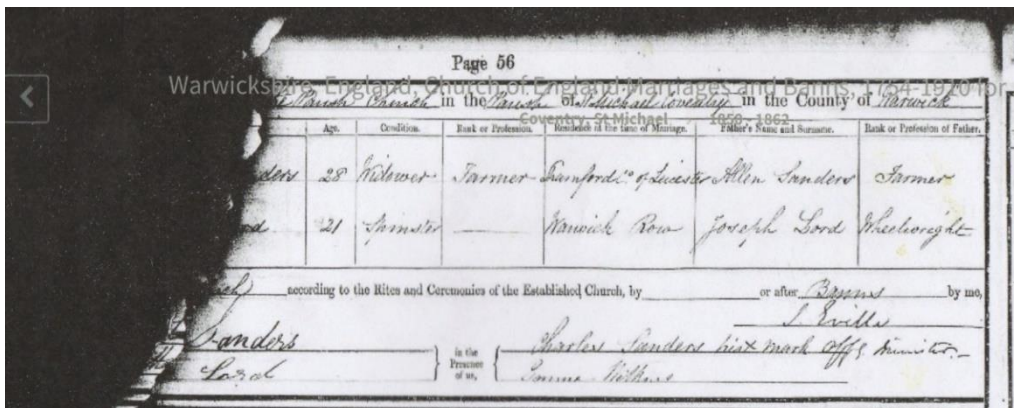 Page 56
Warwickshire, England, Church of England Marriages and Banns, 1754-1910 for
Parish Church in the Parish of St Michael Coventry in the County of Warwick
Coventry, St Michael 1858 - 1862
Age. Condition. Rank or Profession. Residence at the time of Marriage. Father's Name and Surname. Rank or Profession of Father.
ders 28 Widower Farmer of Leicester Allen Sanders Farmer
21 Spinster — Warwick Row Joseph Lord Wheelwright
according to the Rites and Ceremonies of the Established Church, by or after Banns by me,
S. Eville
Sanders in the Presence of us, Charles Sanders his x mark Offg Minister.
Lord Emma